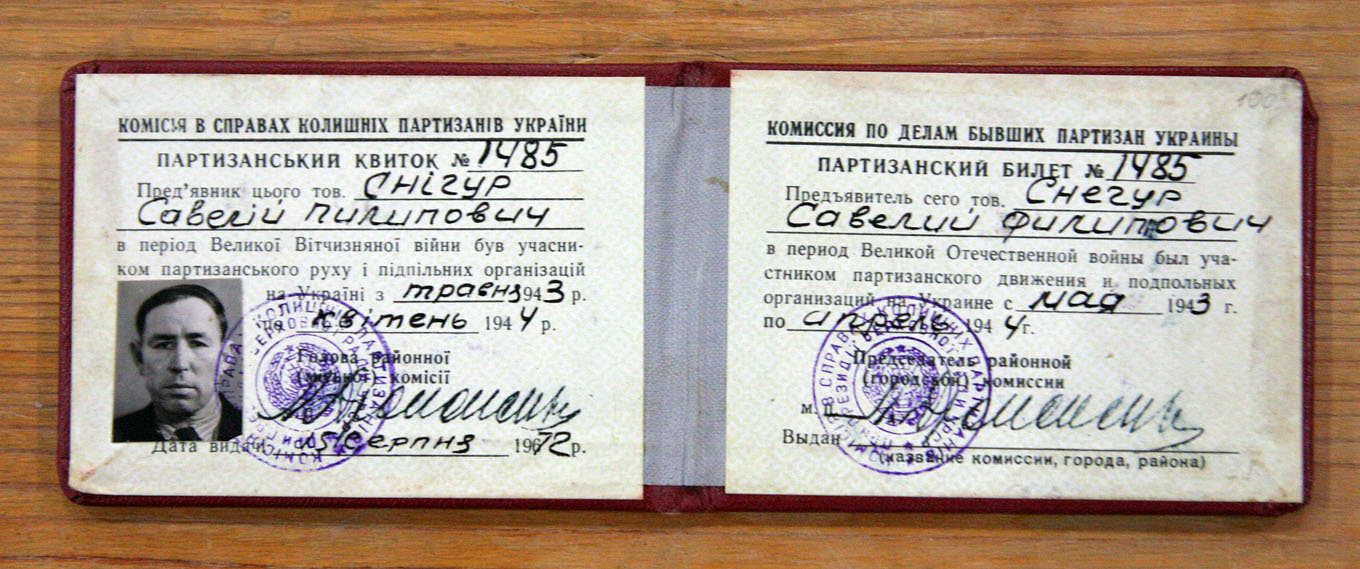 КОМІСІЯ В СПРАВАХ КОЛИШНІХ ПАРТИЗАНІВ УКРАЇНИ
ПАРТИЗАНСЬКИЙ КВИТОК № 1485
Пред'явник цього тов. Снігур
Савелій Пилипович
в період Великої Вітчизняної війни був учасни-
ком партизанського руху і підпільних організацій
на Україні з травня 1943 р.
по квітень 1944 р.
Голова районної
(міської) комісії
Дата видачі 15 серпня 1972 р.
100
КОМИССИЯ ПО ДЕЛАМ БЫВШИХ ПАРТИЗАН УКРАИНЫ
ПАРТИЗАНСКИЙ БИЛЕТ № 1485
Предъявитель сего тов. Снегур
Савелий Филипович
в период Великой Отечественной войны был уча-
стником партизанского движения и подпольных
организаций на Украине с мая 1943 г.
по апрель 1944 г.
Председатель районной
(городской) комиссии
м. п.
Выдан
(название комиссии, города, района)